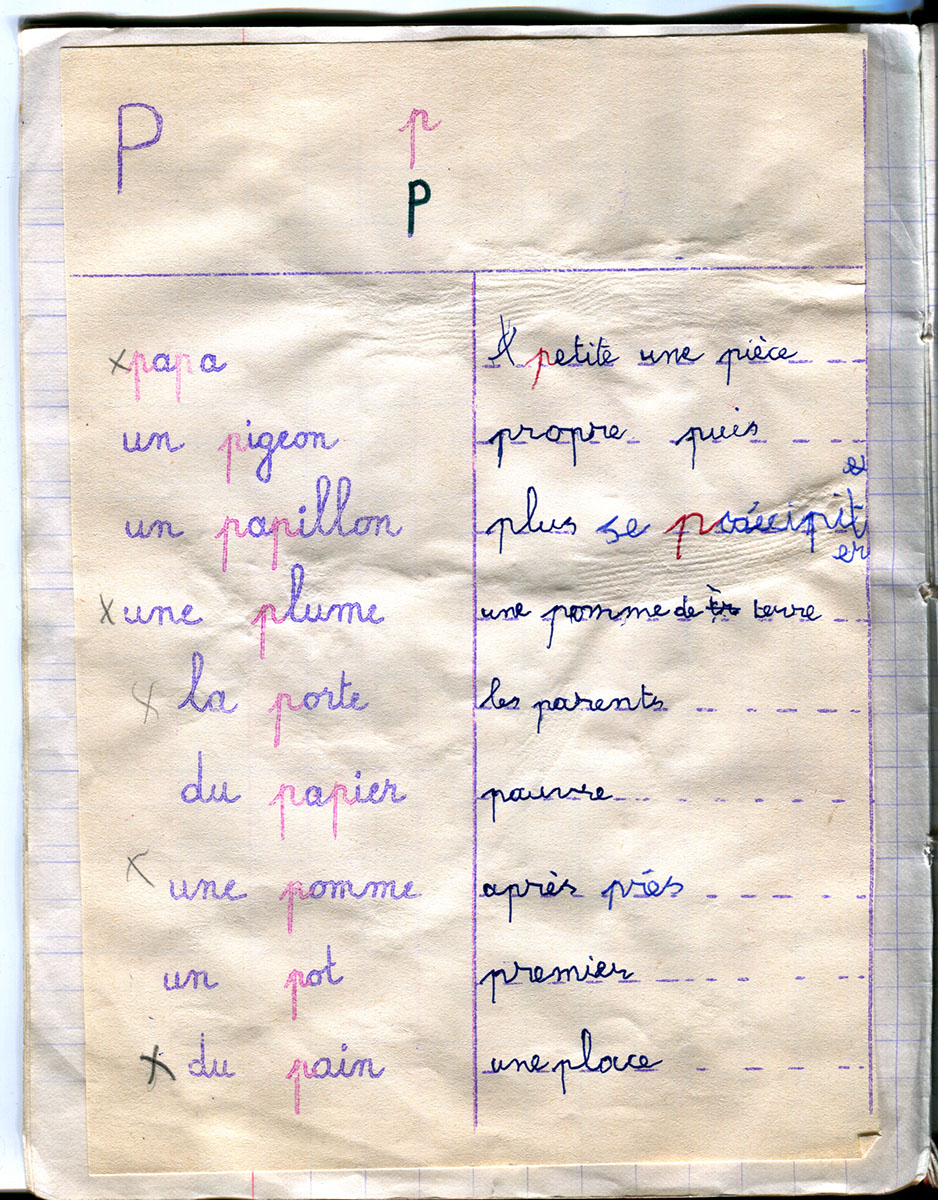 P p
p
papa
un pigeon
un papillon
une plume
la porte
du papier
une pomme
un pot
du pain
petite une pièce
propre puis
plus se précipit
er
une pomme de terre
les parents
pauvre
après près
premier
une place